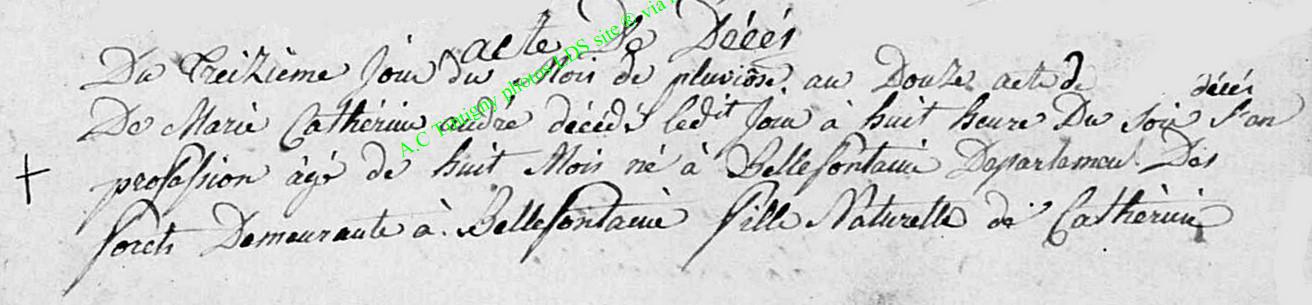 acte De Décés
Du treizième Jour du Mois de pluviôse au Douze acte de décés
De Marie Cathérine andré décédé ledit Jour à huit heure Du soir San
profession âgé de huit Mois né à Bellefontaine Departement Des
forets Demeurante à Bellefontaine fille Naturelle de Cathérine
A.C Tintigny photos LDS site © via